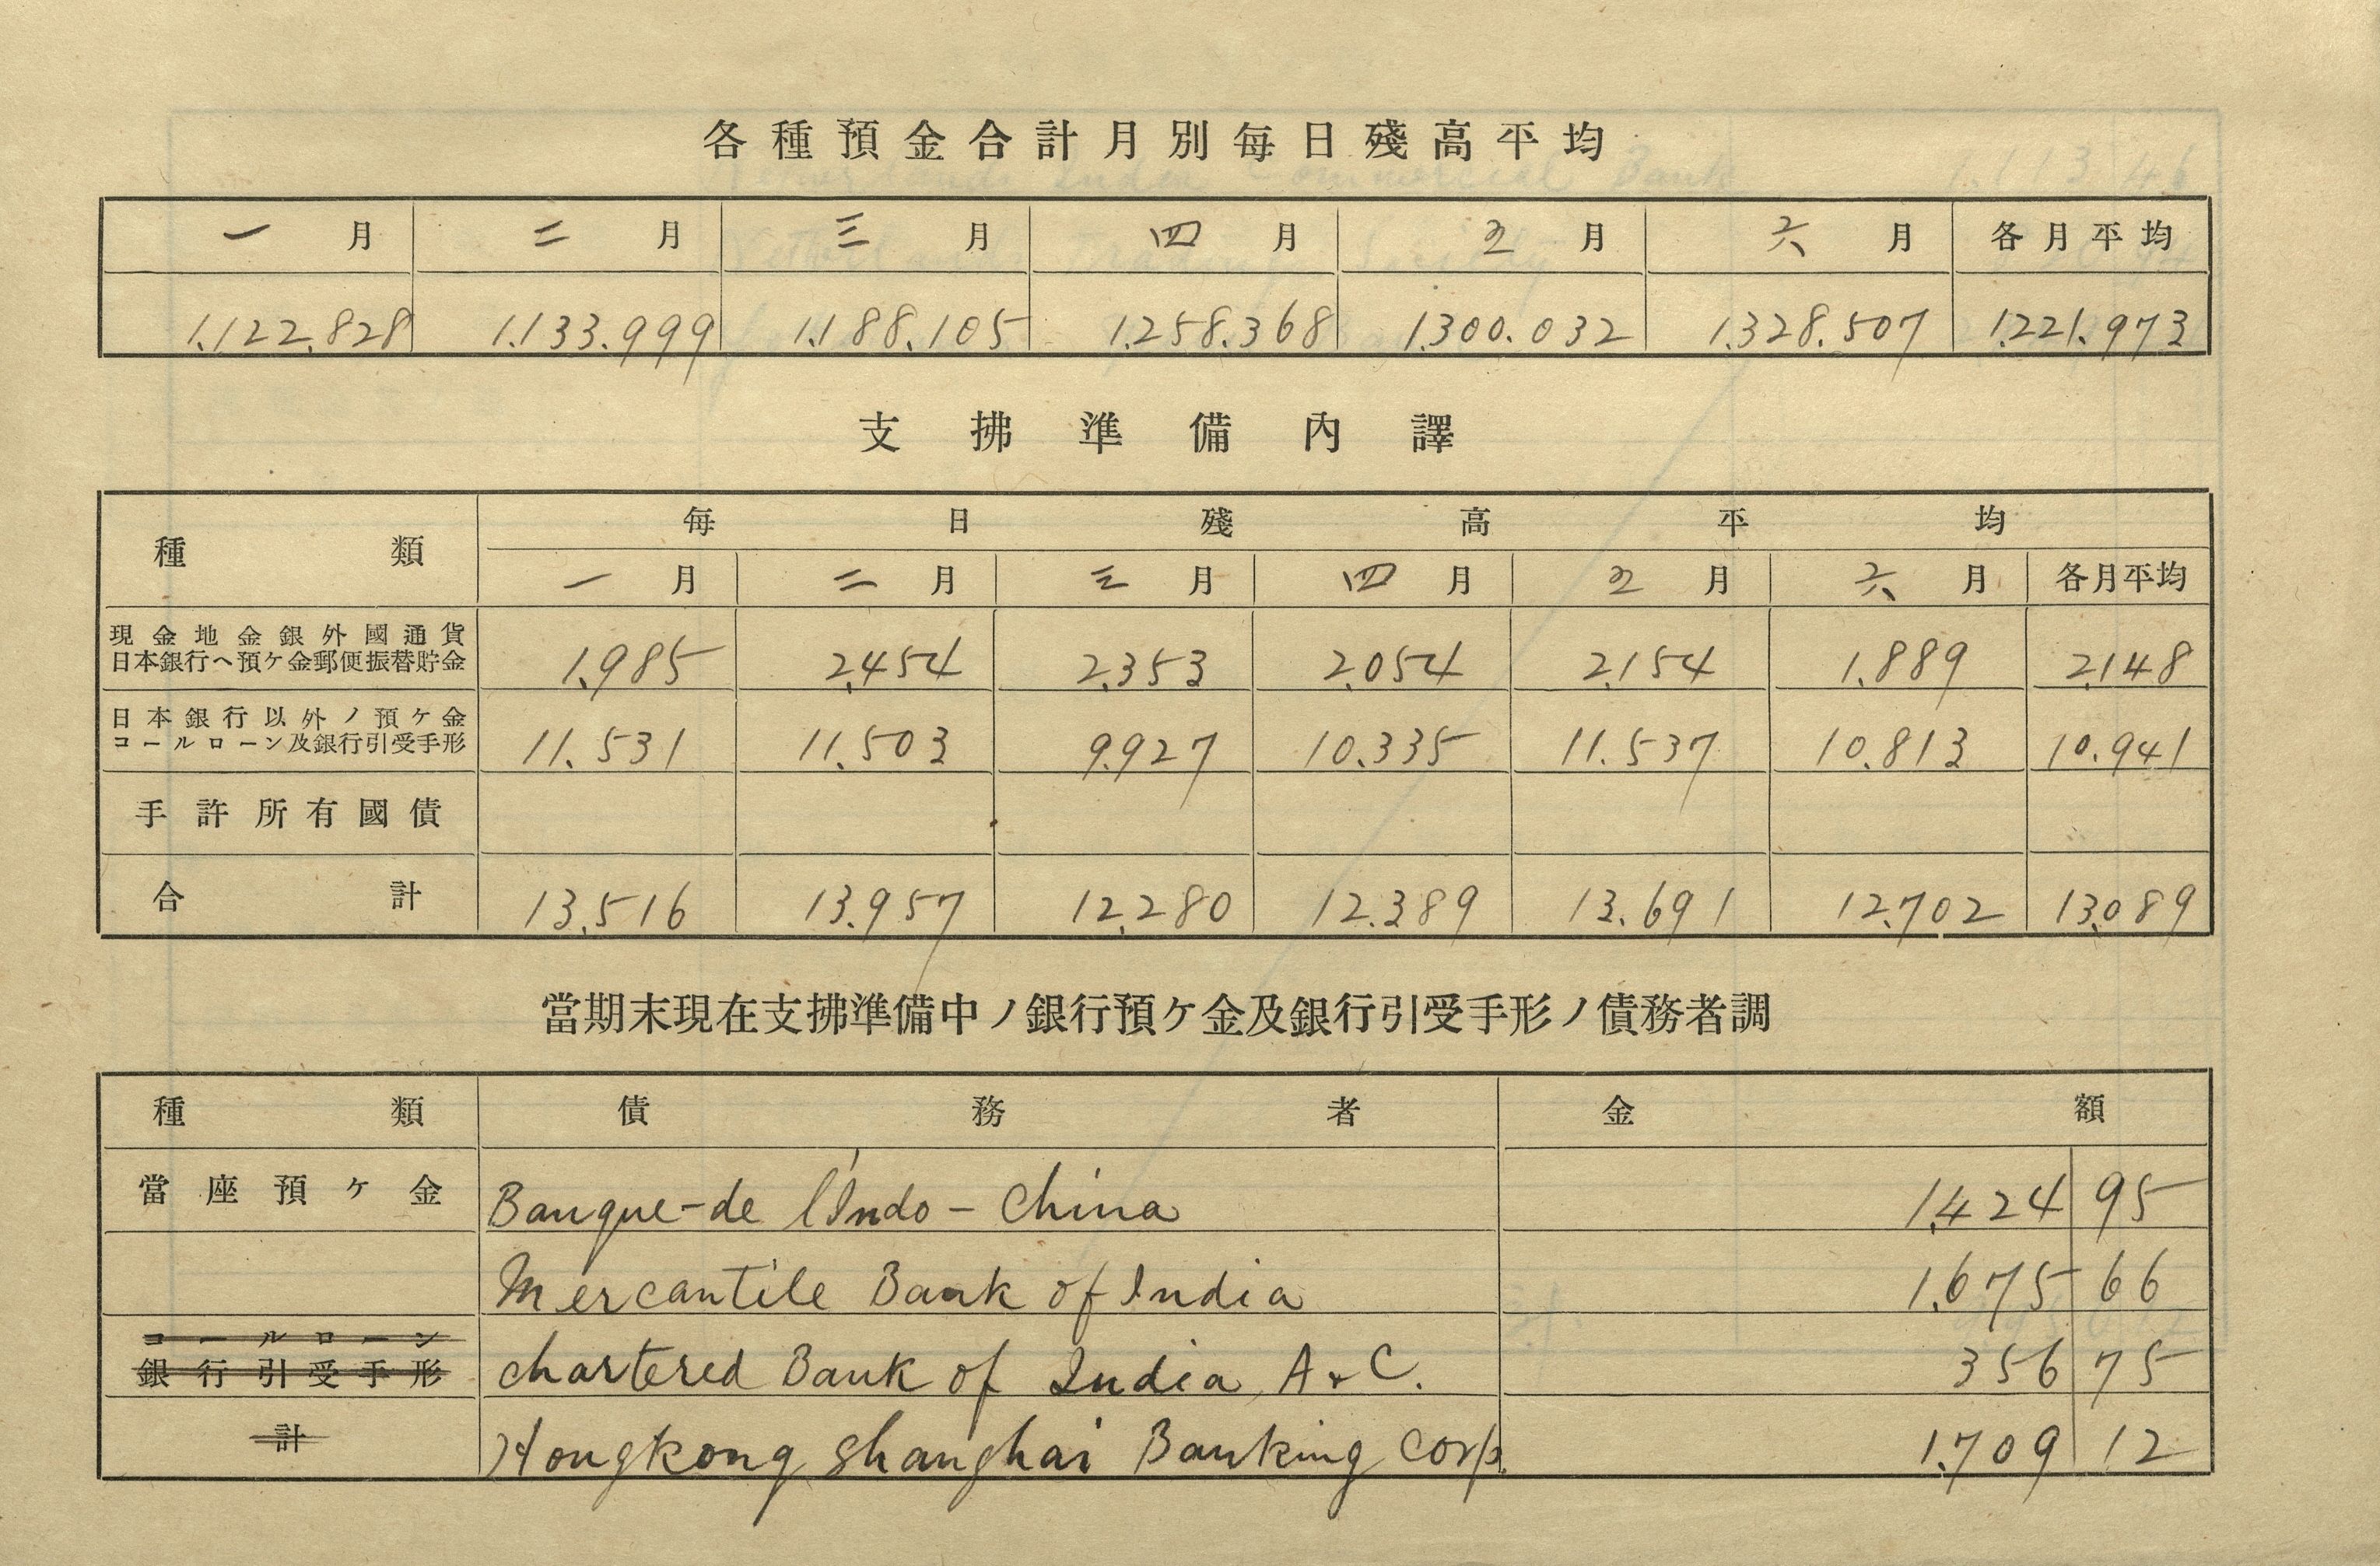 各種預金合計月別每日殘高平均
一月 二月 三月 四月 五月 六月 各月平均
1.122.828 1.133.999 1.188.105 1.258.368 1.300.032 1.328.507 1.221.973
支拂準備內譯
種類 每日殘高平均
一月 二月 三月 四月 五月 六月 各月平均
現金地金銀外國通貨
日本銀行ヘ預ケ金郵便振替貯金 1.985 2.454 2.353 2.054 2.154 1.889 2.148
日本銀行以外ノ預ケ金
コールローン及銀行引受手形 11.531 11.503 9.927 10.335 11.537 10.813 10.941
手許所有國債
合計 13.516 13.957 12.280 12.389 13.691 12.702 13.089
當期末現在支拂準備中ノ銀行預ケ金及銀行引受手形ノ債務者調
種類 債務者 金額
當座預ケ金 Banque-de l'Indo-China 1.424 95
Mercantile Bank of India 1.675 66
コールローン
銀行引受手形 chartered Bank of India, A & C. 356 75
計 Hongkong Shanghai Banking Corp. 1.709 12